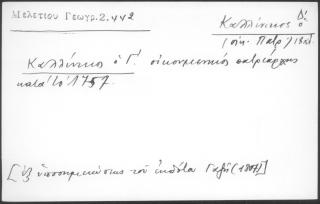 Μελετίου Γεωγρ. 2. 442
Καλλίνικος ὁ Δ΄
(οἰκ. Πατρ.)
Καλλίνικος ὁ Γ΄. οἰκουμενικὸς πατριάρχης
κατὰ τὸ 1757
[ἐξ ὑποσημειώσεως τοῦ ἐκδότου Γαζῆ (1807)]